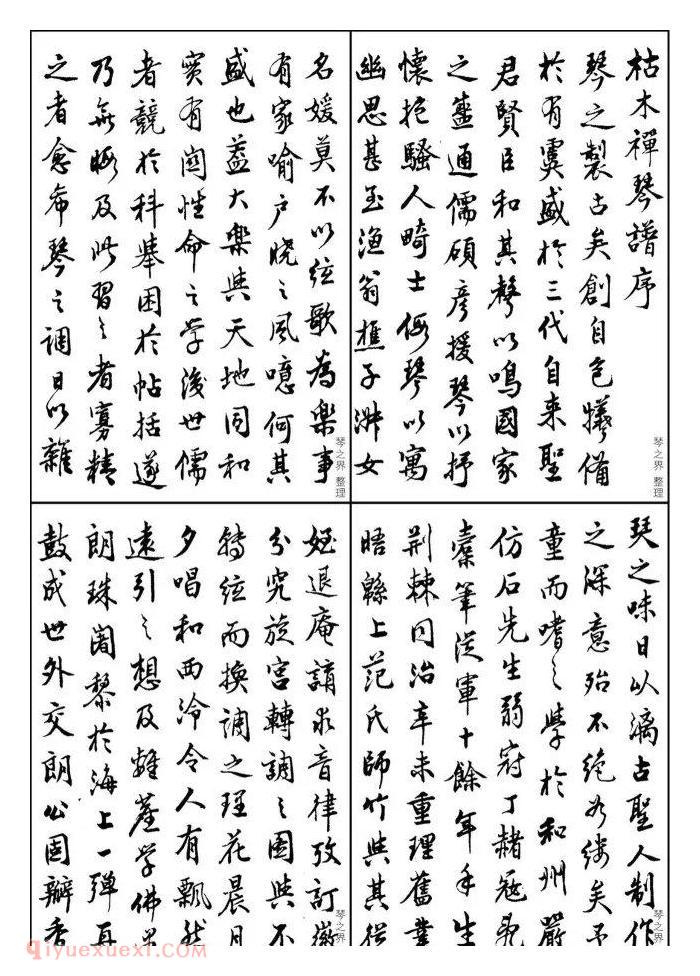 枯木禪琴譜序
琴之製古矣創自包犧備
於有虞盛於三代自來聖
君賢臣和其聲以鳴國家
之盛通儒碩彥援琴以抒
懷抱騷人畸士假琴以寓
幽思甚至漁翁樵子淑女
琴之界 整理
名媛莫不以絃歌為樂事
有家喻戶曉之風噫何其
盛也蓋大樂與天地同和
實有關性命之學後世儒
者競於科舉困於帖括遂
乃無暇及此習之者寡精
之者愈希琴之調日以雜
琴之界 整理
琴之味日以漓古聖人制作
之深意殆不絕如縷矣
童而嗜之學於和州嚴
仿石先生弱冠丁赭寇
橐筆從軍十餘年手生
荊棘同治辛未重理舊業
晤緜上范氏師竹與其從
琴之界
姪退庵請求音律攷訂徽
分究旋宮轉調之圖與不
轉絃而換調之理花晨月
夕唱和西泠令人有飄然
遠引之想及難產學佛
朗珠闍黎於海上一彈再
鼓成世外交朗公固辦香
琴之界
qiyuexuexi.com